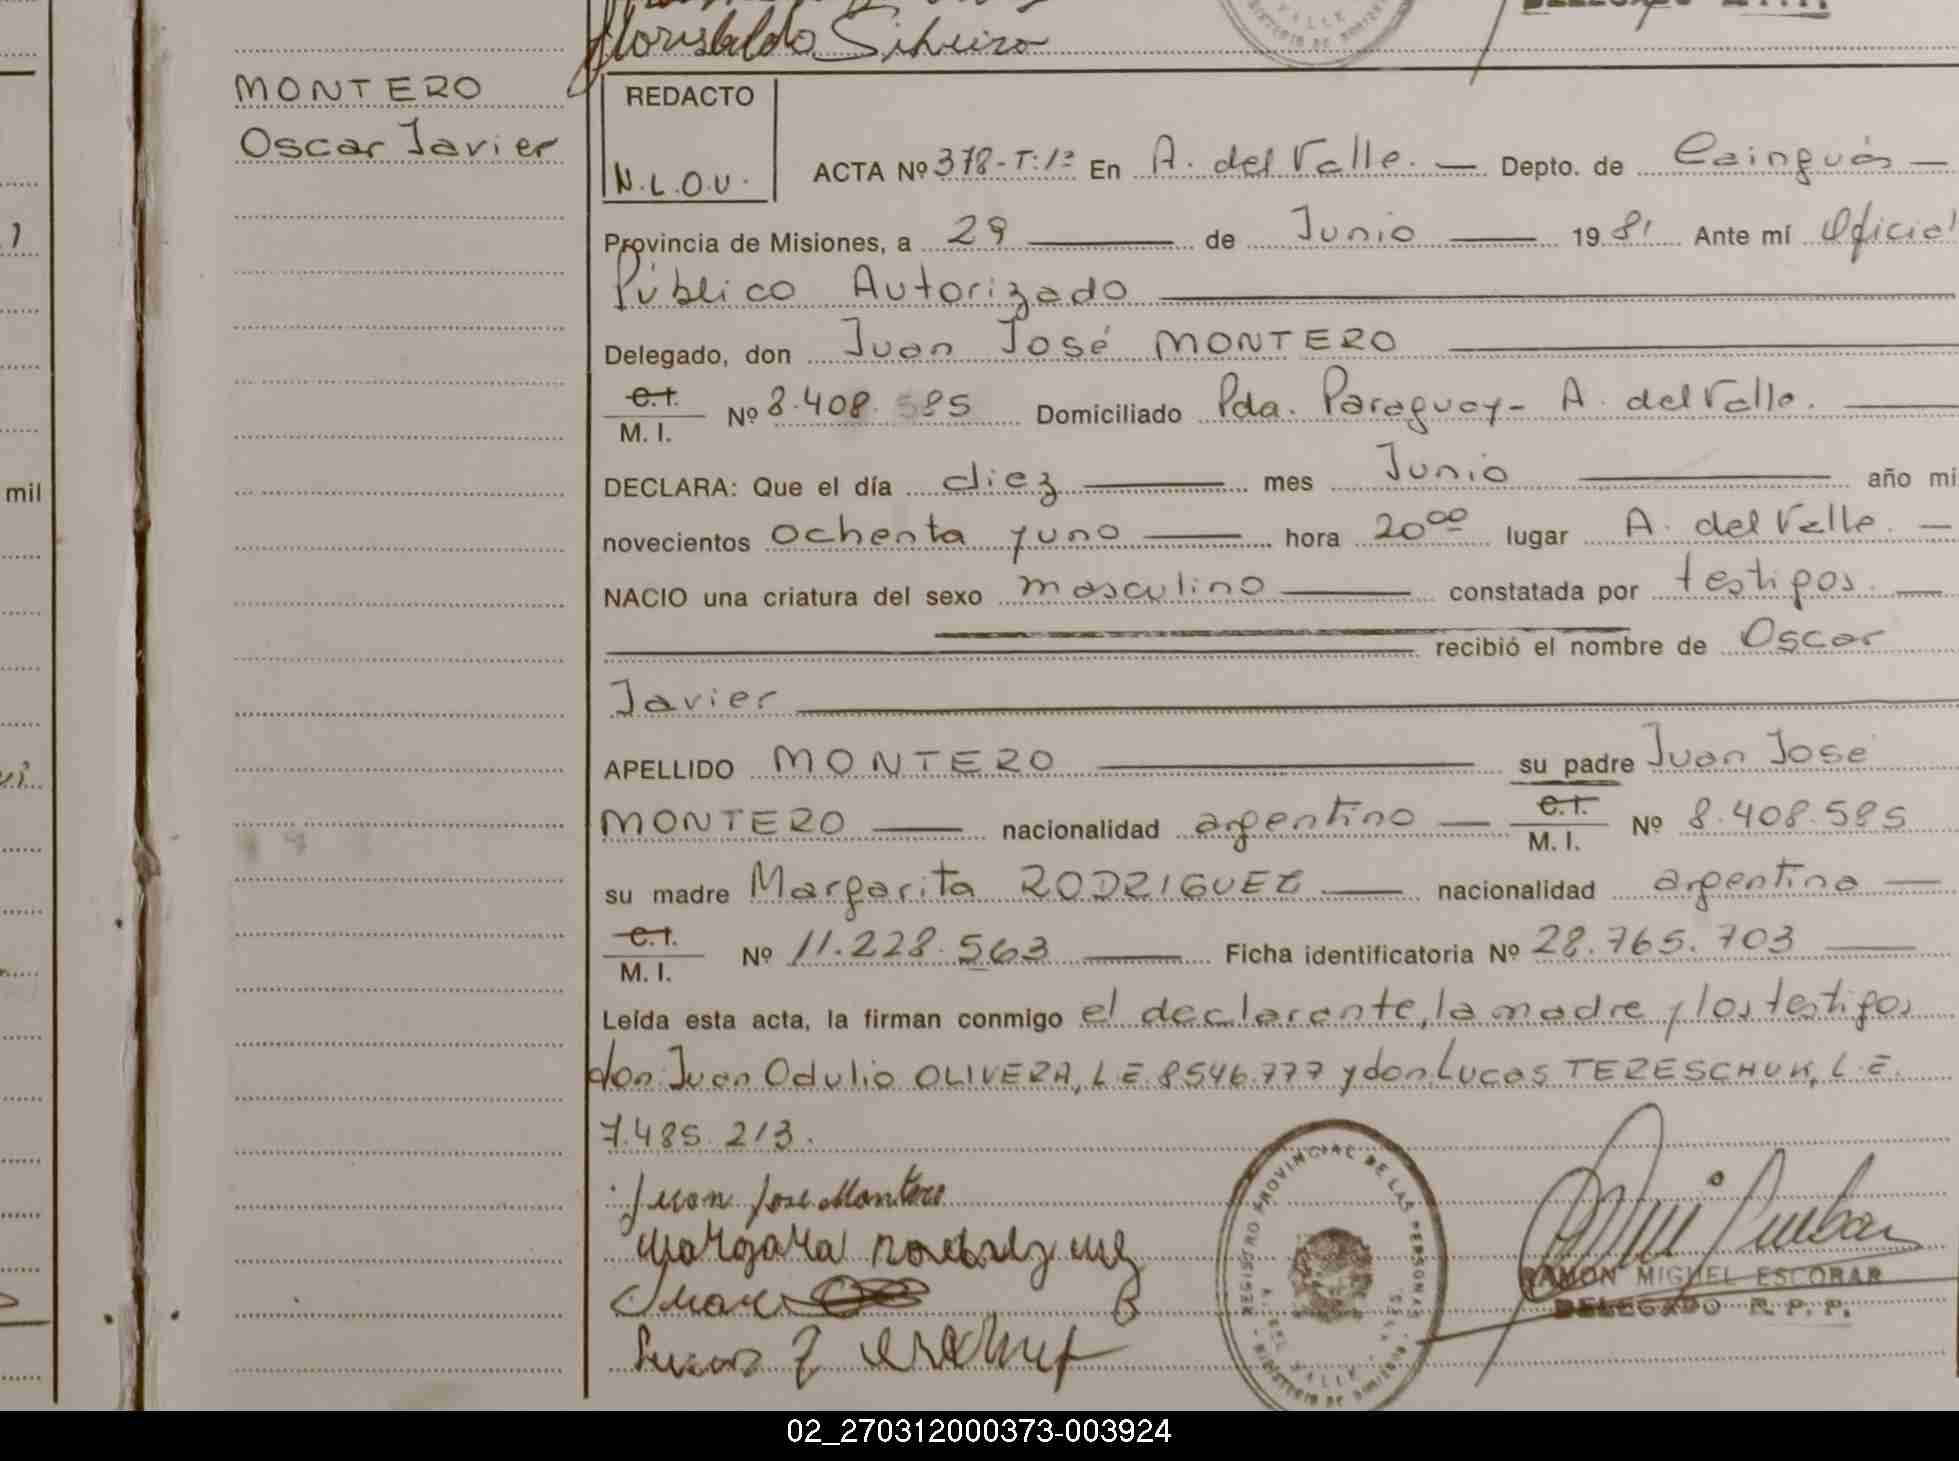 Florisbaldo Silveira
MONTERO
Oscar Javier
REDACTO
N.L.O.V.
ACTA Nº 378-T:1º En A. del Valle. — Depto. de Cainguás —
Provincia de Misiones, a 29 — de Junio — 1981 Ante mí Oficial
Público Autorizado —
Delegado, don Juan José MONTERO —
C.I. / M. I. Nº 8.408.585 Domiciliado Pda. Paraguay- A. del Valle. —
DECLARA: Que el día diez — mes Junio — año mi
novecientos ochenta y uno — hora 20⁰⁰ lugar A. del Valle. —
NACIO una criatura del sexo masculino — constatada por testigos. —
— recibió el nombre de Oscar
Javier —
APELLIDO MONTERO — su padre Juan José
MONTERO — nacionalidad argentino — C.I. / M. I. Nº 8.408.585
su madre Margarita RODRIGUEZ — nacionalidad argentina —
C.I. / M. I. Nº 11.228.563 — Ficha identificatoria Nº 28.765.703 —
Leída esta acta, la firman conmigo el declarante, la madre y los testigos
don Juan Odulio OLIVERA, L E 8546.777 y don Lucas TERESCHUK, L.E.
7.485.213.
Juan Jose Montero
REGISTRO PROVINCIAL DE LAS PERSONAS
A. DEL VALLE
RAMON MIGUEL ESCOBAR
DELEGADO R. P. P.
mil
02_270312000373-003924